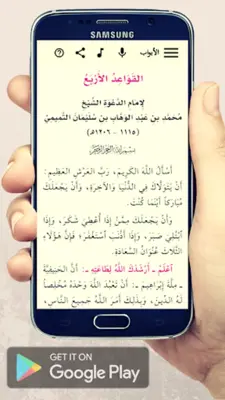 SAMSUNG
الأبواب
القَوَاعِدُ الأَرْبَعُ
لإمَامِ الدَّعْوَةِ الشَّيْخِ
مُحَمَّدِ بنِ عَبْدِ الوَهَّابِ بنِ سُلَيْمَانَ التَّمِيمِيِّ
(١١١٥ – ١٢٠٦هـ)
بسم الله الرحمن الرحيم
أَسْأَلُ اللَّهَ الكَرِيمَ، رَبَّ العَرْشِ العَظِيمِ:
أَنْ يَتَوَلَّاكَ فِي الدُّنْيَا وَالآخِرَةِ، وَأَنْ يَجْعَلَكَ
مُبَارَكاً أَيْنَمَا كُنْتَ.
وَأَنْ يَجْعَلَكَ مِمَّنْ إِذَا أُعْطِيَ شَكَرَ، وَإِذَا
ابْتُلِيَ صَبَرَ، وَإِذَا أَذْنَبَ اسْتَغْفَرَ؛ فَإِنَّ هَؤُلَاءِ
الثَّلَاثَ عُنْوَانُ السَّعَادَةِ.
اعْلَمْ – أَرْشَدَكَ اللَّهُ لِطَاعَتِهِ –: أَنَّ الحَنِيفِيَّةَ
– مِلَّةَ إِبْرَاهِيمَ –: أَنْ تَعْبُدَ اللَّهَ وَحْدَهُ مُخْلِصاً
لَهُ الدِّينَ، وَبِذَلِكَ أَمَرَ اللَّهُ جَمِيعَ النَّاسِ،
GET IT ON
Google Play